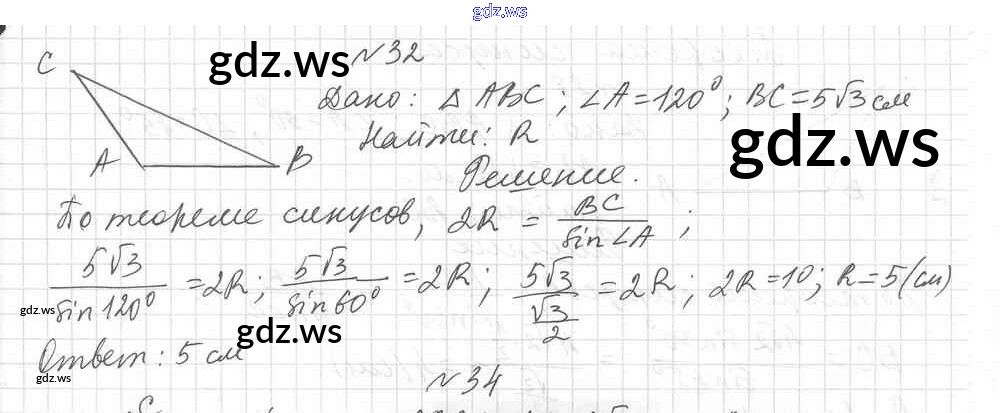 gdz.ws
gdz.ws №32
C
Дано: Δ ABC; ∠A=120°; BC=5√3 см
gdz.ws
Найти: R
A B
Решение.
По теореме синусов, 2R = BC/sin∠A;
5√3/sin120° = 2R; 5√3/sin60° = 2R; 5√3/(√3/2) = 2R; 2R=10; R=5(см)
gdz.ws
gdz.ws
Ответ: 5 см
gdz.ws
№34